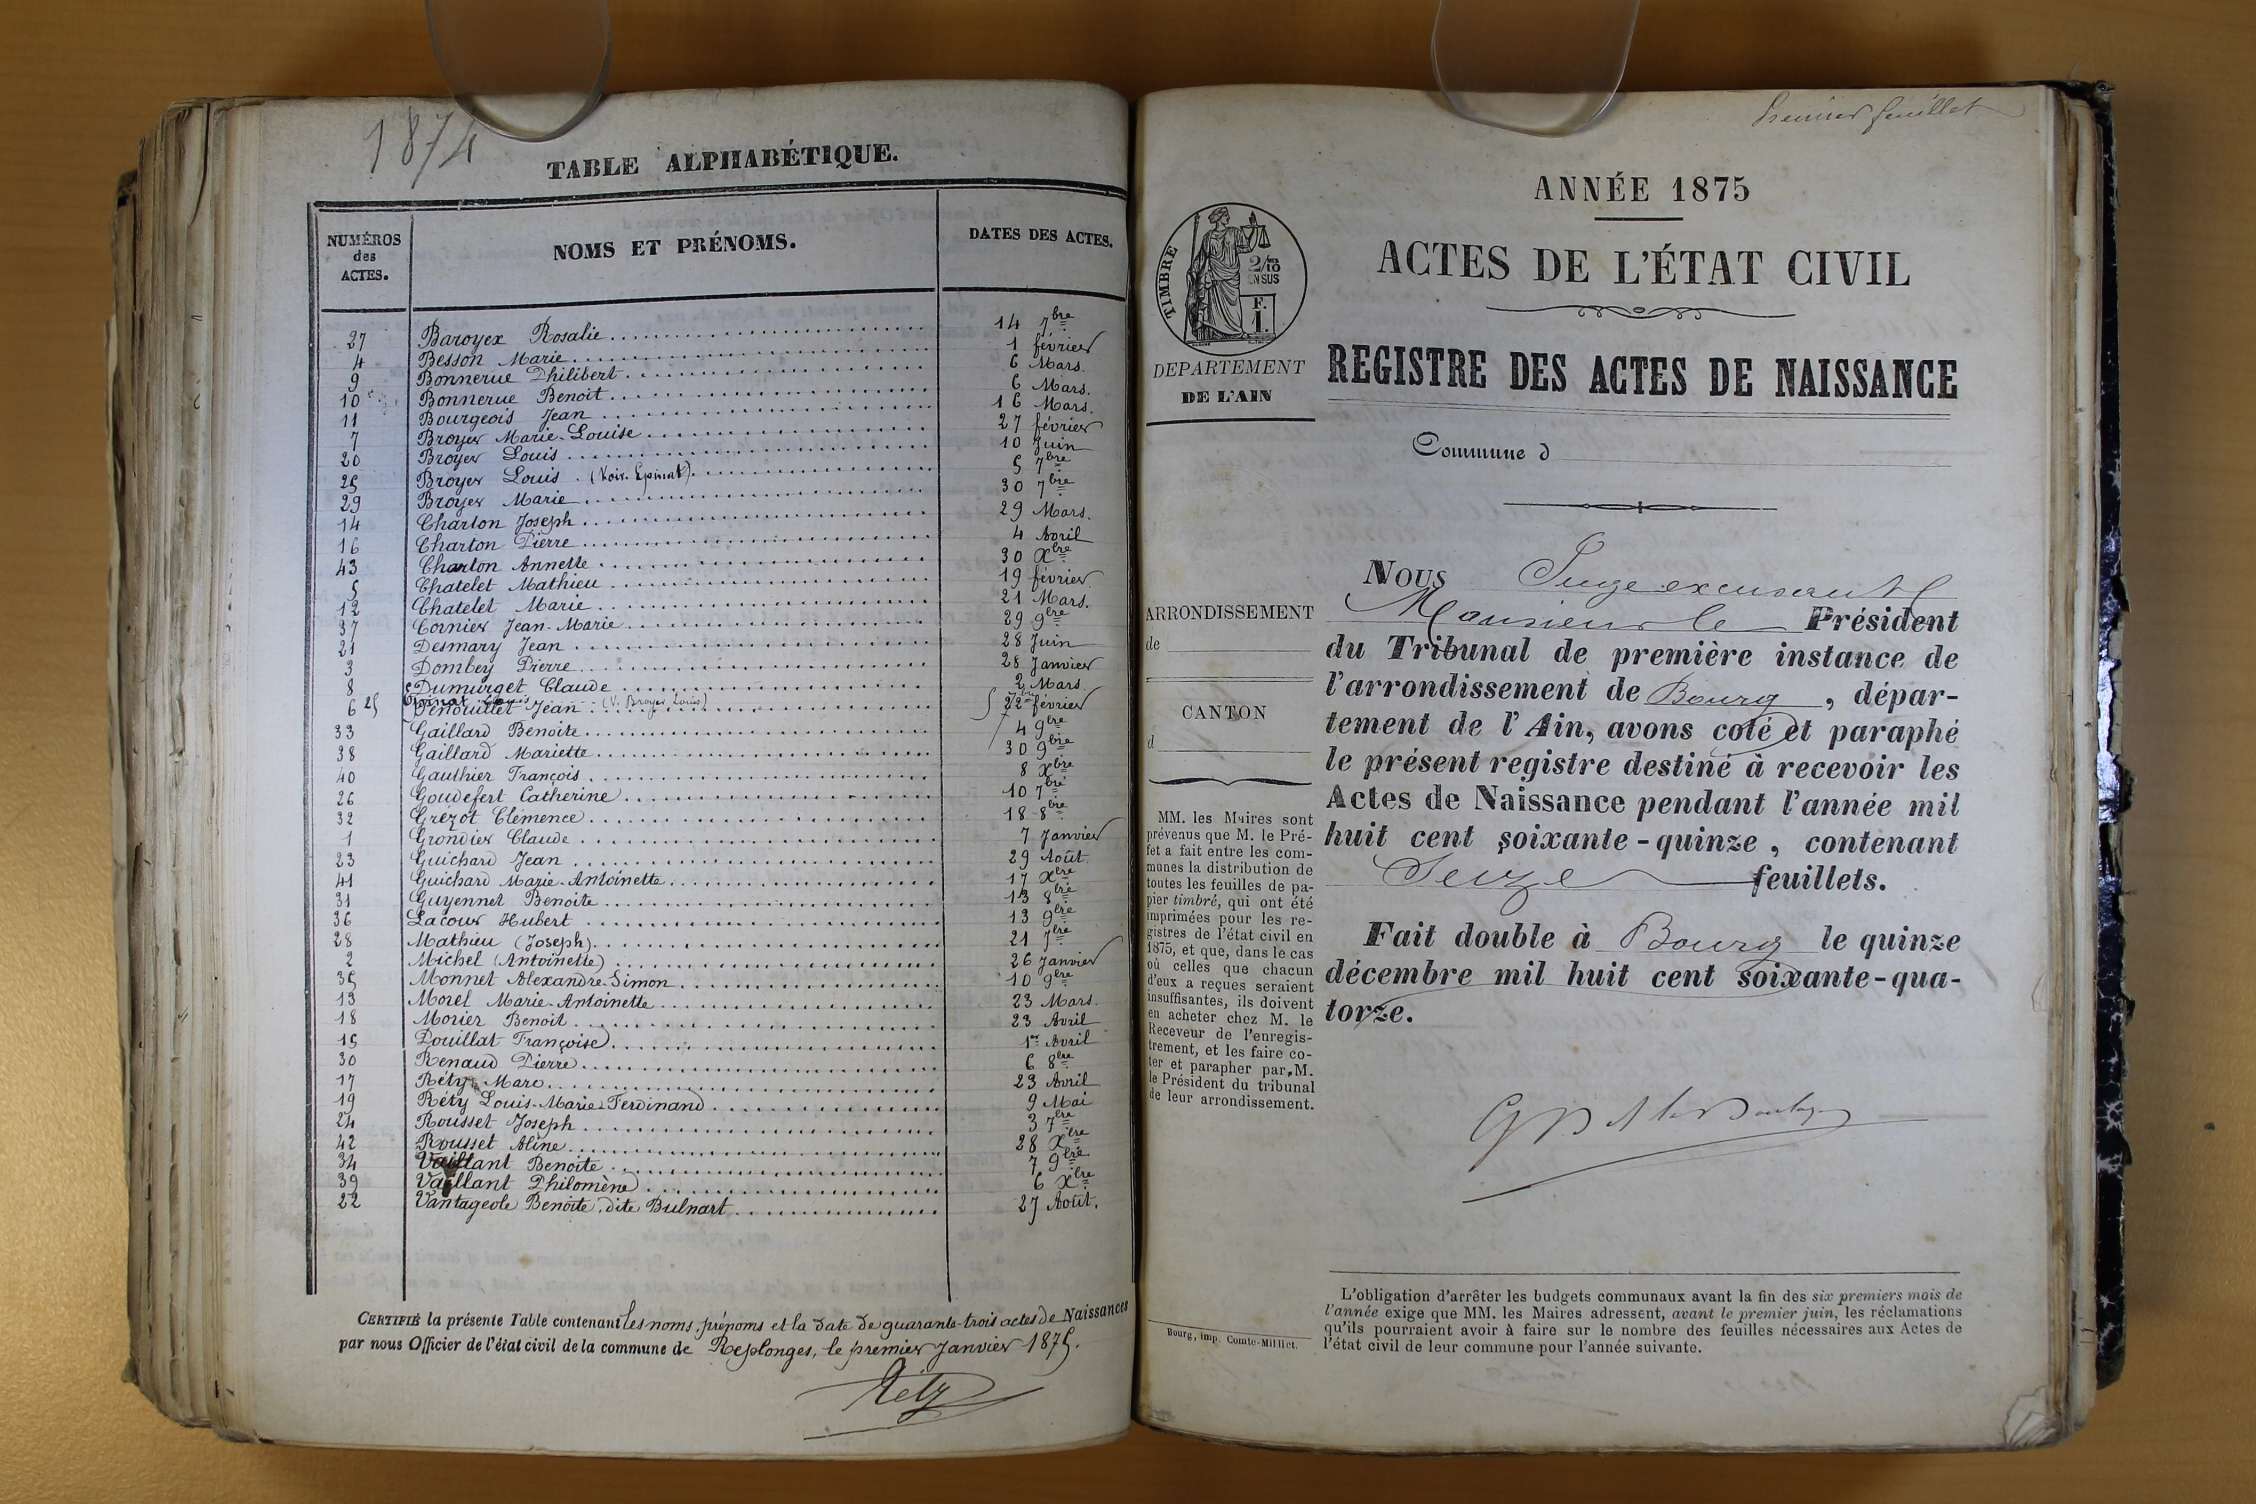 1874
TABLE ALPHABÉTIQUE.
NUMÉROS des ACTES. NOMS ET PRÉNOMS. DATES DES ACTES.
27 Baroyer Rosalie 14 7bre
4 Besson Marie 1 février
9 Bonnerue Philibert 6 Mars.
10 Bonnerue Benoit 6 Mars.
11 Bourgeois Jean 16 Mars.
7 Broyer Marie-Louise 27 février
20 Broyer Louis 10 Juin
25 Broyer Louis (Voir Epinat) 5 7bre
29 Broyer Marie 30 7bre
14 Charton Joseph 29 Mars.
16 Charton Pierre 4 Avril
43 Charton Annette 30 Xbre
5 Chatelet Mathieu 19 février
12 Chatelet Marie 21 Mars.
37 Cornier Jean-Marie 29 9bre
21 Desmary Jean 28 Juin
3 Dombey Pierre 28 Janvier
8 Dumurget Claude 2 Mars
25 Epinat Louis (V. Broyer Louis) 5 7bre
6 Fenouillet Jean 22 février
33 Gaillard Benoite 4 9bre
38 Gaillard Mariette 30 9bre
40 Gauthier François 8 Xbre
26 Goudefert Catherine 10 7bre
32 Grezot Clémence 18 8bre
1 Grondier Claude 7 Janvier
23 Guichard Jean 29 Août
41 Guichard Marie-Antoinette 17 Xbre
31 Guyennet Benoite 13 8bre
36 Lacour Hubert 13 9bre
28 Mathieu (Joseph) 21 7bre
2 Michel (Antoinette) 26 Janvier
35 Monnet Alexandre-Simon 10 9bre
13 Morel Marie-Antoinette 23 Mars.
18 Morier Benoit 23 Avril
15 Pouillat Françoise 1er Avril
30 Renaud Pierre 6 8bre
17 Réty Marc 23 Avril
19 Réty Louis-Marie-Ferdinand 9 Mai
24 Rousset Joseph 3 7bre
42 Rousset Aline 28 Xbre
34 Vaillant Benoite 7 9bre
39 Vaillant Philomène 6 Xbre
22 Vantageole Benoite dite Bulnart 27 Août.
CERTIFIÉ la présente Table contenant les noms, prénoms et la date de quarante-trois actes de Naissances
par nous Officier de l'état civil de la commune de Replonges, le premier Janvier 1875.
Réty
Premier feuillet
ANNÉE 1875
ACTES DE L'ÉTAT CIVIL
REGISTRE DES ACTES DE NAISSANCE
Commune d
TIMBRE
2/10
EN SUS
F.
1.
DEPARTEMENT
DE L'AIN
ARRONDISSEMENT
de
CANTON
d
MM. les Maires sont
prévenus que M. le Pré-
fet a fait entre les com-
munes la distribution de
toutes les feuilles de pa-
pier timbré, qui ont été
imprimées pour les re-
gistres de l'état civil en
1875, et que, dans le cas
où celles que chacun
d'eux a reçues seraient
insuffisantes, ils doivent
en acheter chez M. le
Receveur de l'enregis-
trement, et les faire co-
ter et parapher par M.
le Président du tribunal
de leur arrondissement.
Bourg, imp. Comte-Milliet.
NOUS Juge excusant
Monsieur le Président
du Tribunal de première instance de
l'arrondissement de Bourg, dépar-
tement de l'Ain, avons coté et paraphé
le présent registre destiné à recevoir les
Actes de Naissance pendant l'année mil
huit cent soixante-quinze, contenant
Seize feuillets.
Fait double à Bourg le quinze
décembre mil huit cent soixante-qua-
torze.
L'obligation d'arrêter les budgets communaux avant la fin des six premiers mois de
l'année exige que MM. les Maires adressent, avant le premier juin, les réclamations
qu'ils pourraient avoir à faire sur le nombre des feuilles nécessaires aux Actes de
l'état civil de leur commune pour l'année suivante.